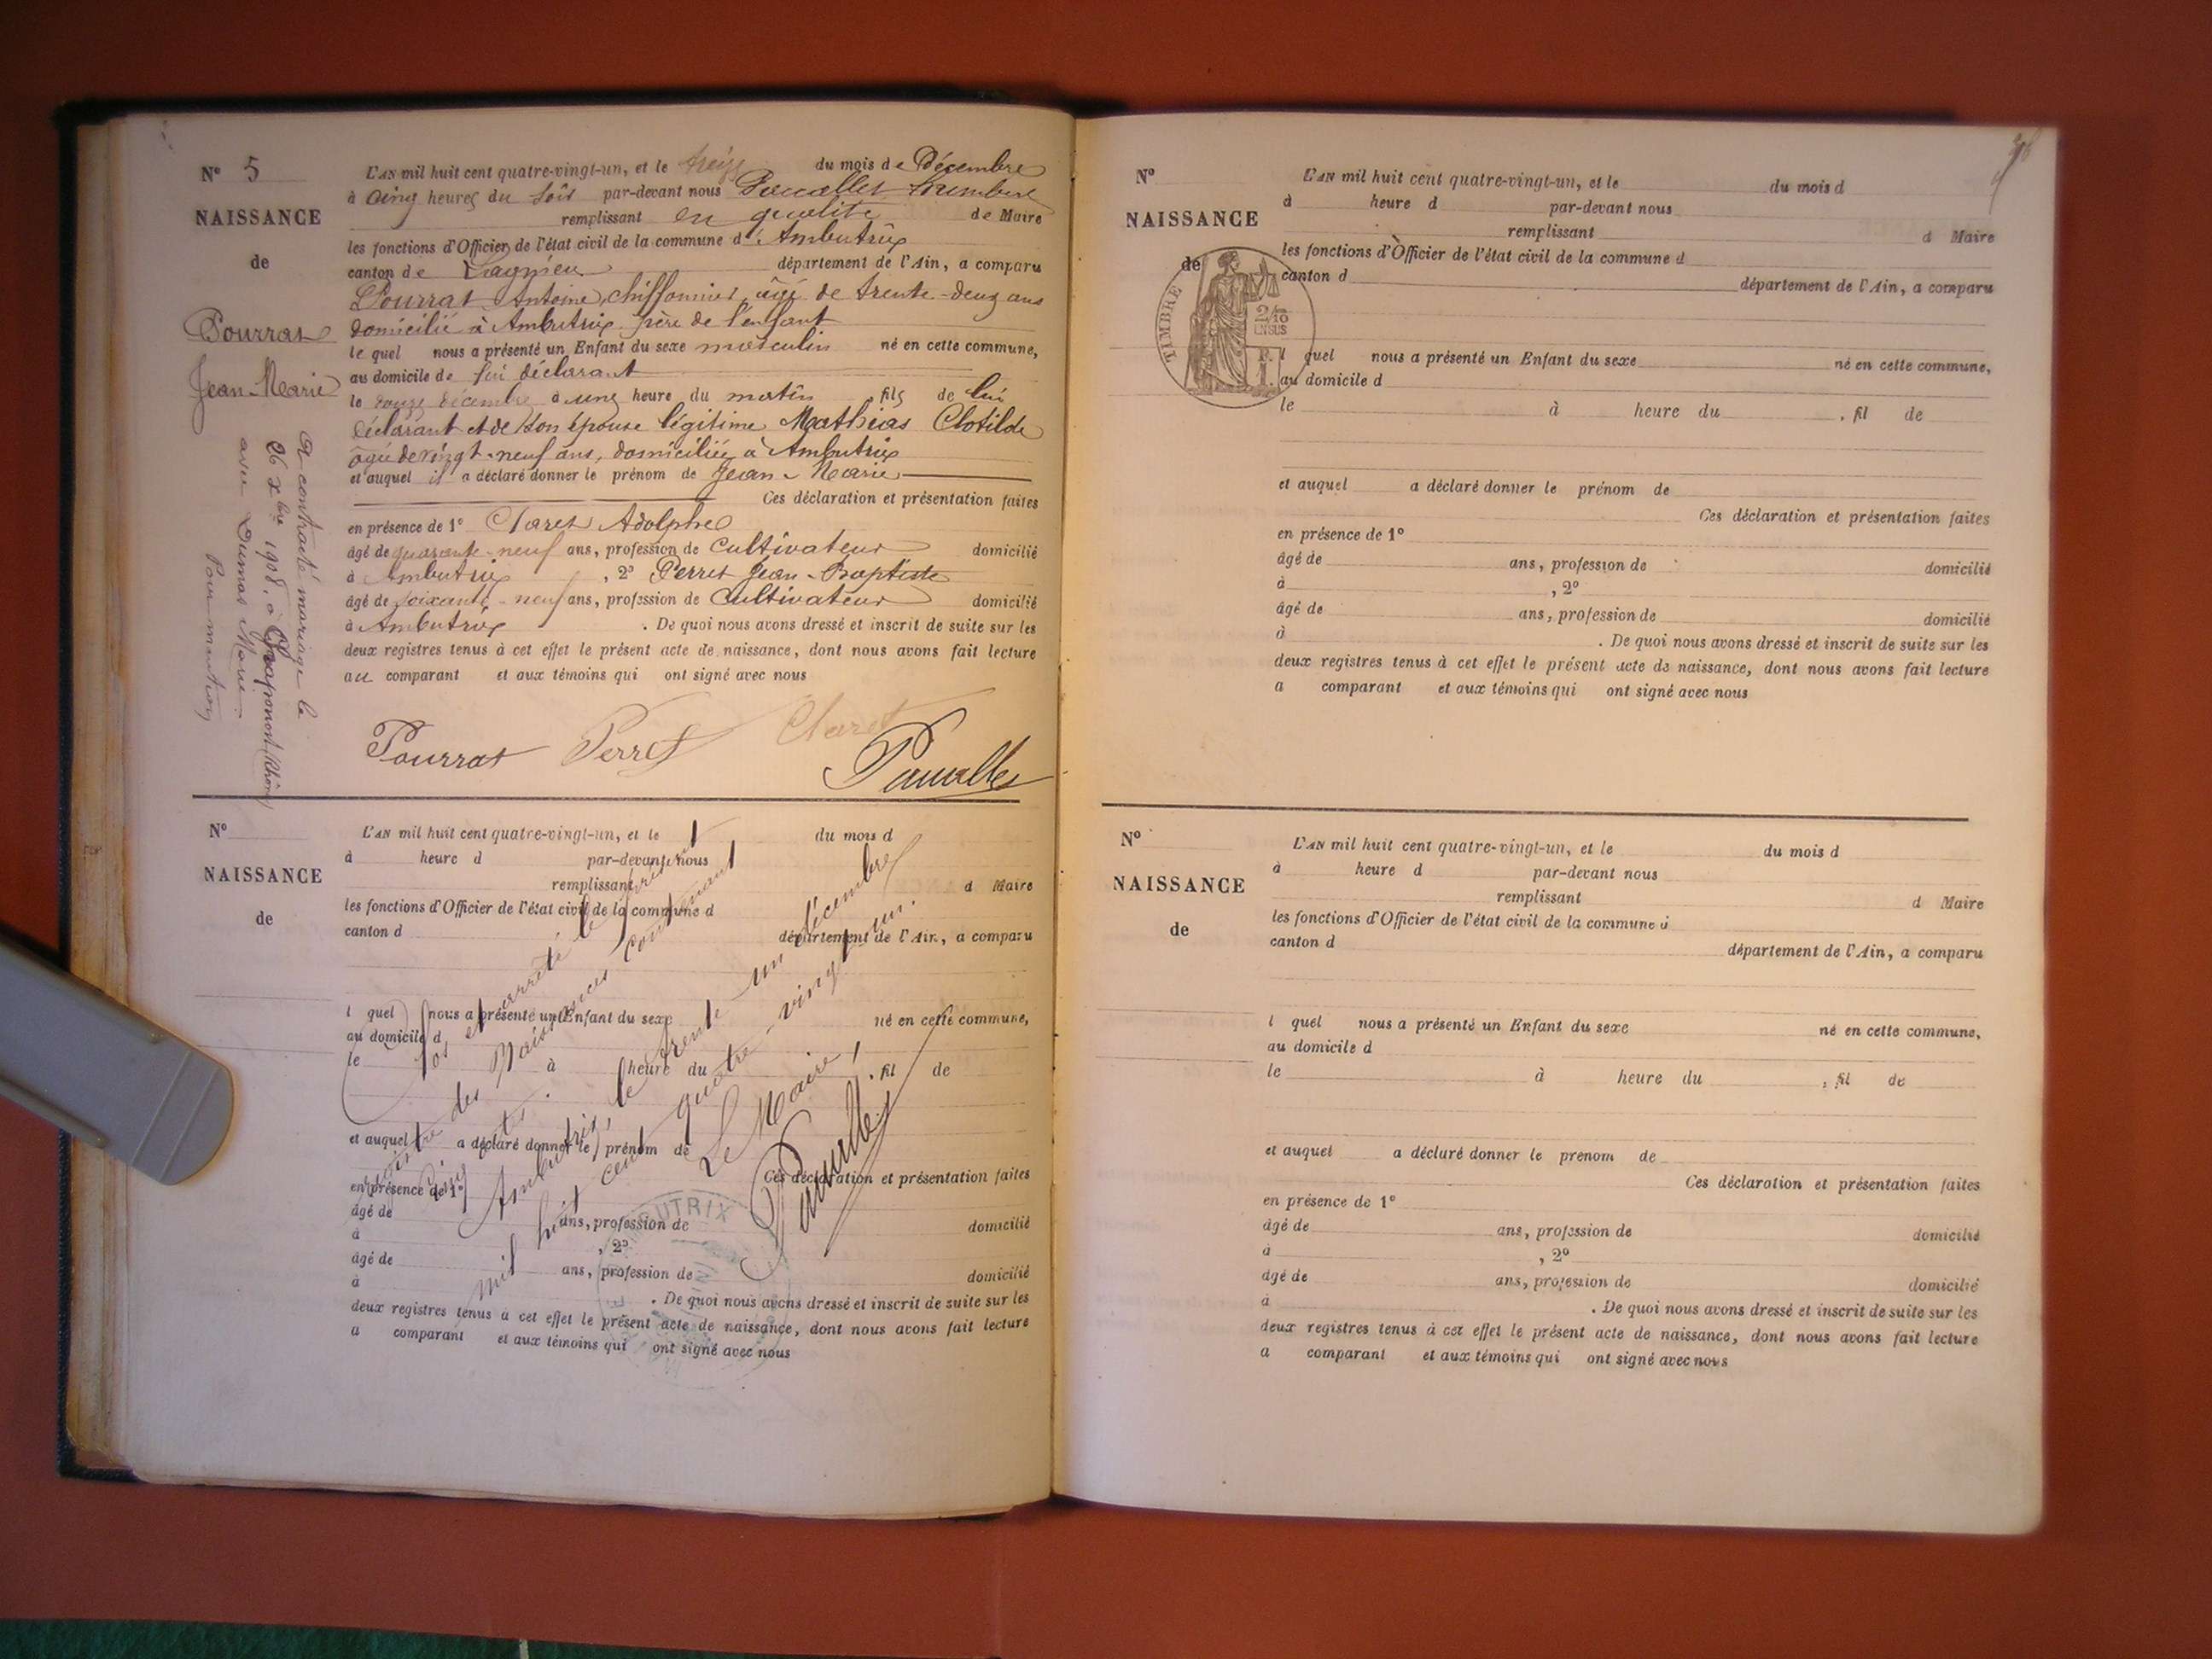 N° 5
NAISSANCE
de
Pourrat
Jean-Marie
L'AN mil huit cent quatre-vingt-un, et le treize du mois de Décembre
à cinq heures du soir par-devant nous
remplissant en qualité de Maire
les fonctions d'Officier de l'état civil de la commune d'Ambutrix
canton de Lagnieu département de l'Ain, a comparu
Pourrat Antoine, chiffonnier, âgé de trente-deux ans
domicilié à Ambutrix père de l'enfant
le quel nous a présenté un Enfant du sexe masculin né en cette commune,
au domicile de lui déclarant
le douze décembre à une heure du matin, fils de lui
déclarant et de son épouse légitime Mathias Clotilde
âgée de vingt-neuf ans, domiciliée à Ambutrix
et auquel il a déclaré donner le prénom de Jean-Marie
Ces déclaration et présentation faites
en présence de 1° Claret Adolphe
âgé de quarante-neuf ans, profession de Cultivateur domicilié
à Ambutrix, 2° Perret Jean-Baptiste
âgé de soixante-neuf ans, profession de Cultivateur domicilié
à Ambutrix. De quoi nous avons dressé et inscrit de suite sur les
deux registres tenus à cet effet le présent acte de naissance, dont nous avons fait lecture
au comparant et aux témoins qui ont signé avec nous
A contracté mariage le
26 Xbre 1908, à Chaponost (Rhône)
avec Dumas Marie.
Pour mention
Pourrat Perret Claret
N°
NAISSANCE
de
L'AN mil huit cent quatre-vingt-un, et le du mois d
à heure d par-devant nous
remplissant d Maire
les fonctions d'Officier de l'état civil de la commune d
canton d département de l'Ain, a comparu
l quel nous a présenté un Enfant du sexe né en cette commune,
au domicile d
le à heure du , fil de
et auquel a déclaré donner le prénom de
Ces déclaration et présentation faites
en présence de 1°
âgé de ans, profession de domicilié
à , 2°
âgé de ans, profession de domicilié
à . De quoi nous avons dressé et inscrit de suite sur les
deux registres tenus à cet effet le présent acte de naissance, dont nous avons fait lecture
a comparant et aux témoins qui ont signé avec nous
Clos et arrêté le présent
registre des Naissances contenant
cinq actes.
Ambutrix, le trente-un décembre
mil huit cent quatre-vingt-un.
Le Maire,
N°
NAISSANCE
de
TIMBRE
2/10
EN SUS
L'AN mil huit cent quatre-vingt-un, et le du mois d
à heure d par-devant nous
remplissant d Maire
les fonctions d'Officier de l'état civil de la commune d
canton d département de l'Ain, a comparu
l quel nous a présenté un Enfant du sexe né en cette commune,
au domicile d
le à heure du , fil de
et auquel a déclaré donner le prénom de
Ces déclaration et présentation faites
en présence de 1°
âgé de ans, profession de domicilié
à , 2°
âgé de ans, profession de domicilié
à . De quoi nous avons dressé et inscrit de suite sur les
deux registres tenus à cet effet le présent acte de naissance, dont nous avons fait lecture
a comparant et aux témoins qui ont signé avec nous
N°
NAISSANCE
de
L'AN mil huit cent quatre-vingt-un, et le du mois d
à heure d par-devant nous
remplissant d Maire
les fonctions d'Officier de l'état civil de la commune d
canton d département de l'Ain, a comparu
l quel nous a présenté un Enfant du sexe né en cette commune,
au domicile d
le à heure du , fil de
et auquel a déclaré donner le prénom de
Ces déclaration et présentation faites
en présence de 1°
âgé de ans, profession de domicilié
à , 2°
âgé de ans, profession de domicilié
à . De quoi nous avons dressé et inscrit de suite sur les
deux registres tenus à cet effet le présent acte de naissance, dont nous avons fait lecture
a comparant et aux témoins qui ont signé avec nous